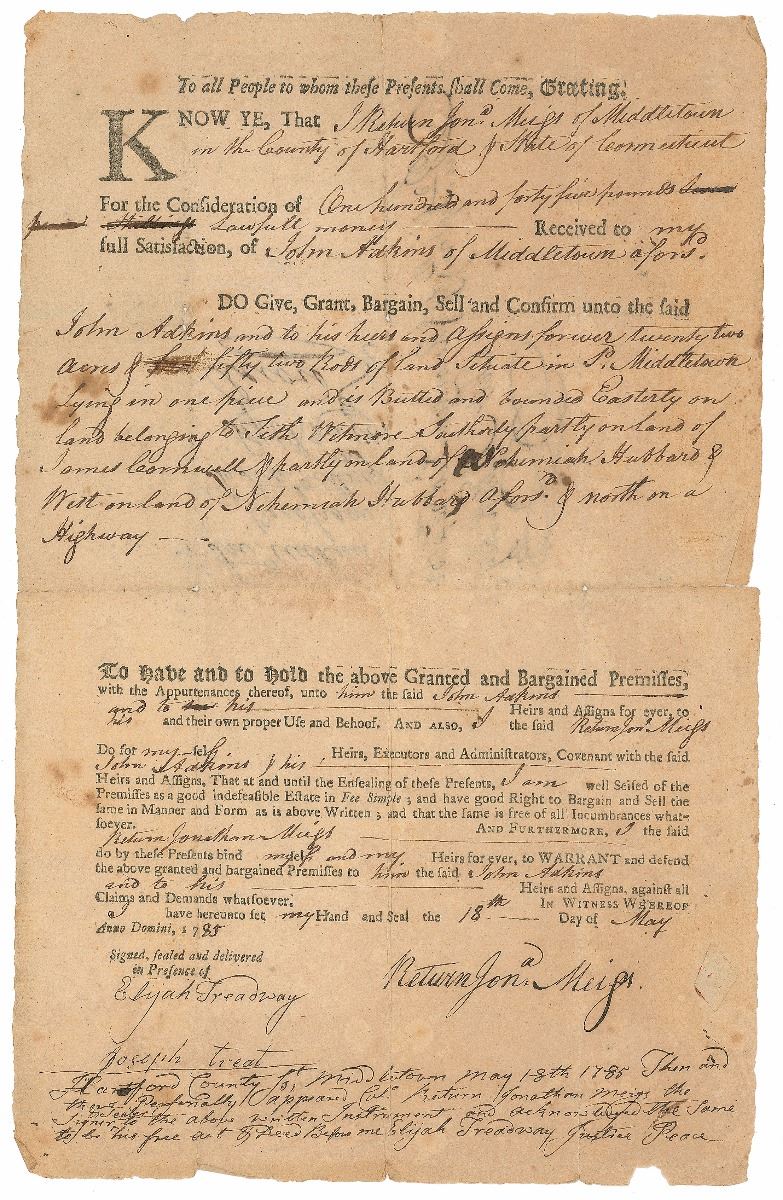 To all People to whom these Presents shall Come, Greeting.
KNOW YE, That I Return Jonª Meigs of Middletown
in the County of Hartford & State of Connecticut
For the Consideration of One hundred and forty five pounds
Lawfull money Received to my
full Satisfaction, of John Adkins of Middletown aforsd.
DO Give, Grant, Bargain, Sell and Confirm unto the said
John Adkins and to his heirs and Assigns forever twenty two
acres & fifty two Rods of land Situate in Sd. Middletown
Lying in one piece and is Butted and bounded Easterly on
land belonging to Seth Wetmore Southerly partly on land of
James Cornwell & partly on land of Nehemiah Hubbard &
West on land of Nehemiah Hubbard aforsd. & north on a
Highway
To Have and to Hold the above Granted and Bargained Premisses,
with the Appurtenances thereof, unto him the said John Adkins
and to his Heirs and Assigns for ever, to
his and their own proper Use and Behoof. AND ALSO, I the said Return Jonª Meigs
Do for my-self Heirs, Executors and Administrators, Covenant with the said
John Adkins & his
Heirs and Assigns, That at and until the Ensealing of these Presents, I am well Seised of the
Premisses as a good indefeasible Estate in Fee Simple; and have good Right to Bargain and Sell the
same in Manner and Form as is above Written; and that the same is free of all Incumbrances what-
soever. AND FURTHERMORE, I the said
Return Jonathan Meigs
do by these Presents bind myself and my Heirs for ever, to WARRANT and defend
the above granted and bargained Premisses to him the said John Adkins
and to his Heirs and Assigns, against all
Claims and Demands whatsoever. IN WITNESS WHEREOF
I have hereunto set my Hand and Seal the 18th Day of May
Anno Domini, 1785
Signed, sealed and delivered
in Presence of
Elijah Treadway
Return Jonª Meigs.
Joseph Treat
Hartford County Ss. Middletown May 18th 1785 Then and
there Personally appeared Col. Return Jonathan Meigs the
Signer & Sealer to the above written Instrument and acknowledged the Same
to be his free act & Deed Before me Elijah Treadway Justice Peace